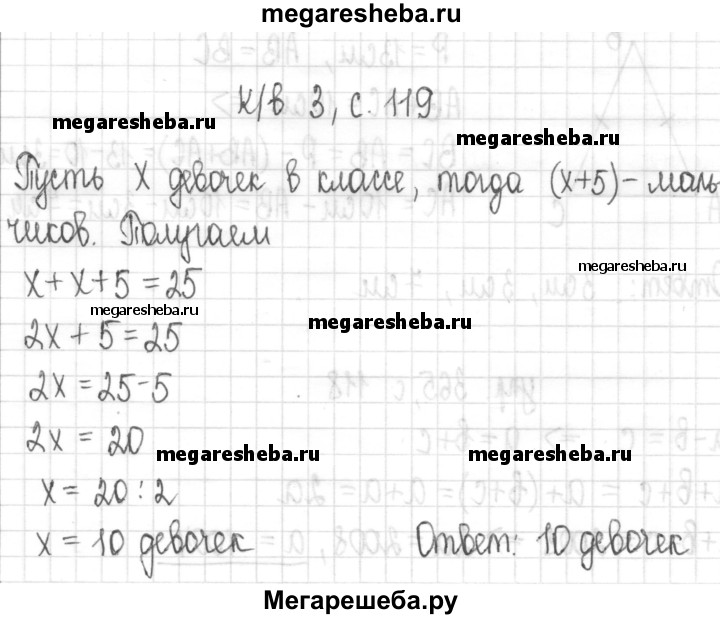 megaresheba.ru
К/в 3, с. 119
megaresheba.ru
megaresheba.ru
Пусть х девочек в классе, тогда (х+5)- маль-
чиков. Получаем
megaresheba.ru
х + х + 5 = 25
megaresheba.ru
megaresheba.ru
2х + 5 = 25
2х = 25-5
2х = 20
megaresheba.ru
megaresheba.ru
х = 20 : 2
х = 10 девочек
Ответ: 10 девочек
Мегарешеба.ру